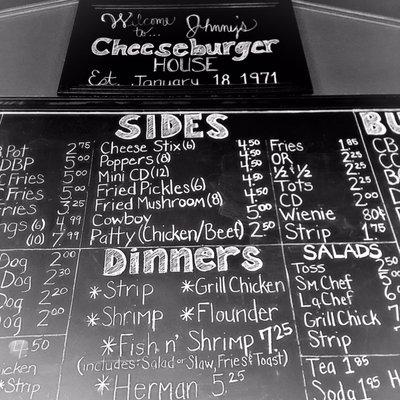 Welcome to... Johnny's
Cheeseburger
HOUSE
Est. January 18, 1971
Pot 2.75
DBP 5.00
C Fries 5.00
Fries 5.00
Fries 3.25
(6) 4.99
(10) 7.99
Dog 2.00
Dog 2.30
Dog 2.20
Dog 2.00
4.50
Strip
SIDES
Cheese Stix (6) 4.50
Poppers (8) 4.50
Mini CD (12) 4.50
Fried Pickles (6) 4.50
Fried Mushroom (8) 4.50
Cowboy 5.00
Patty (Chicken/Beef) 2.50
Fries 1.85
OR 2.25
½ & ½ 2.25
Tots 2.25
CD 2.00
Wienie 80¢
Strip 1.75
Dinners
*Strip *Grill Chicken
*Shrimp *Flounder
*Fish n' Shrimp 7.25
(includes: Salad or Slaw, Fries & Toast)
*Herman 5.25
SALADS
Toss
Sm Chef
La Chef
Grill Chick
Strip
Tea 1.85
Soda 1.85
BU
CB
CC